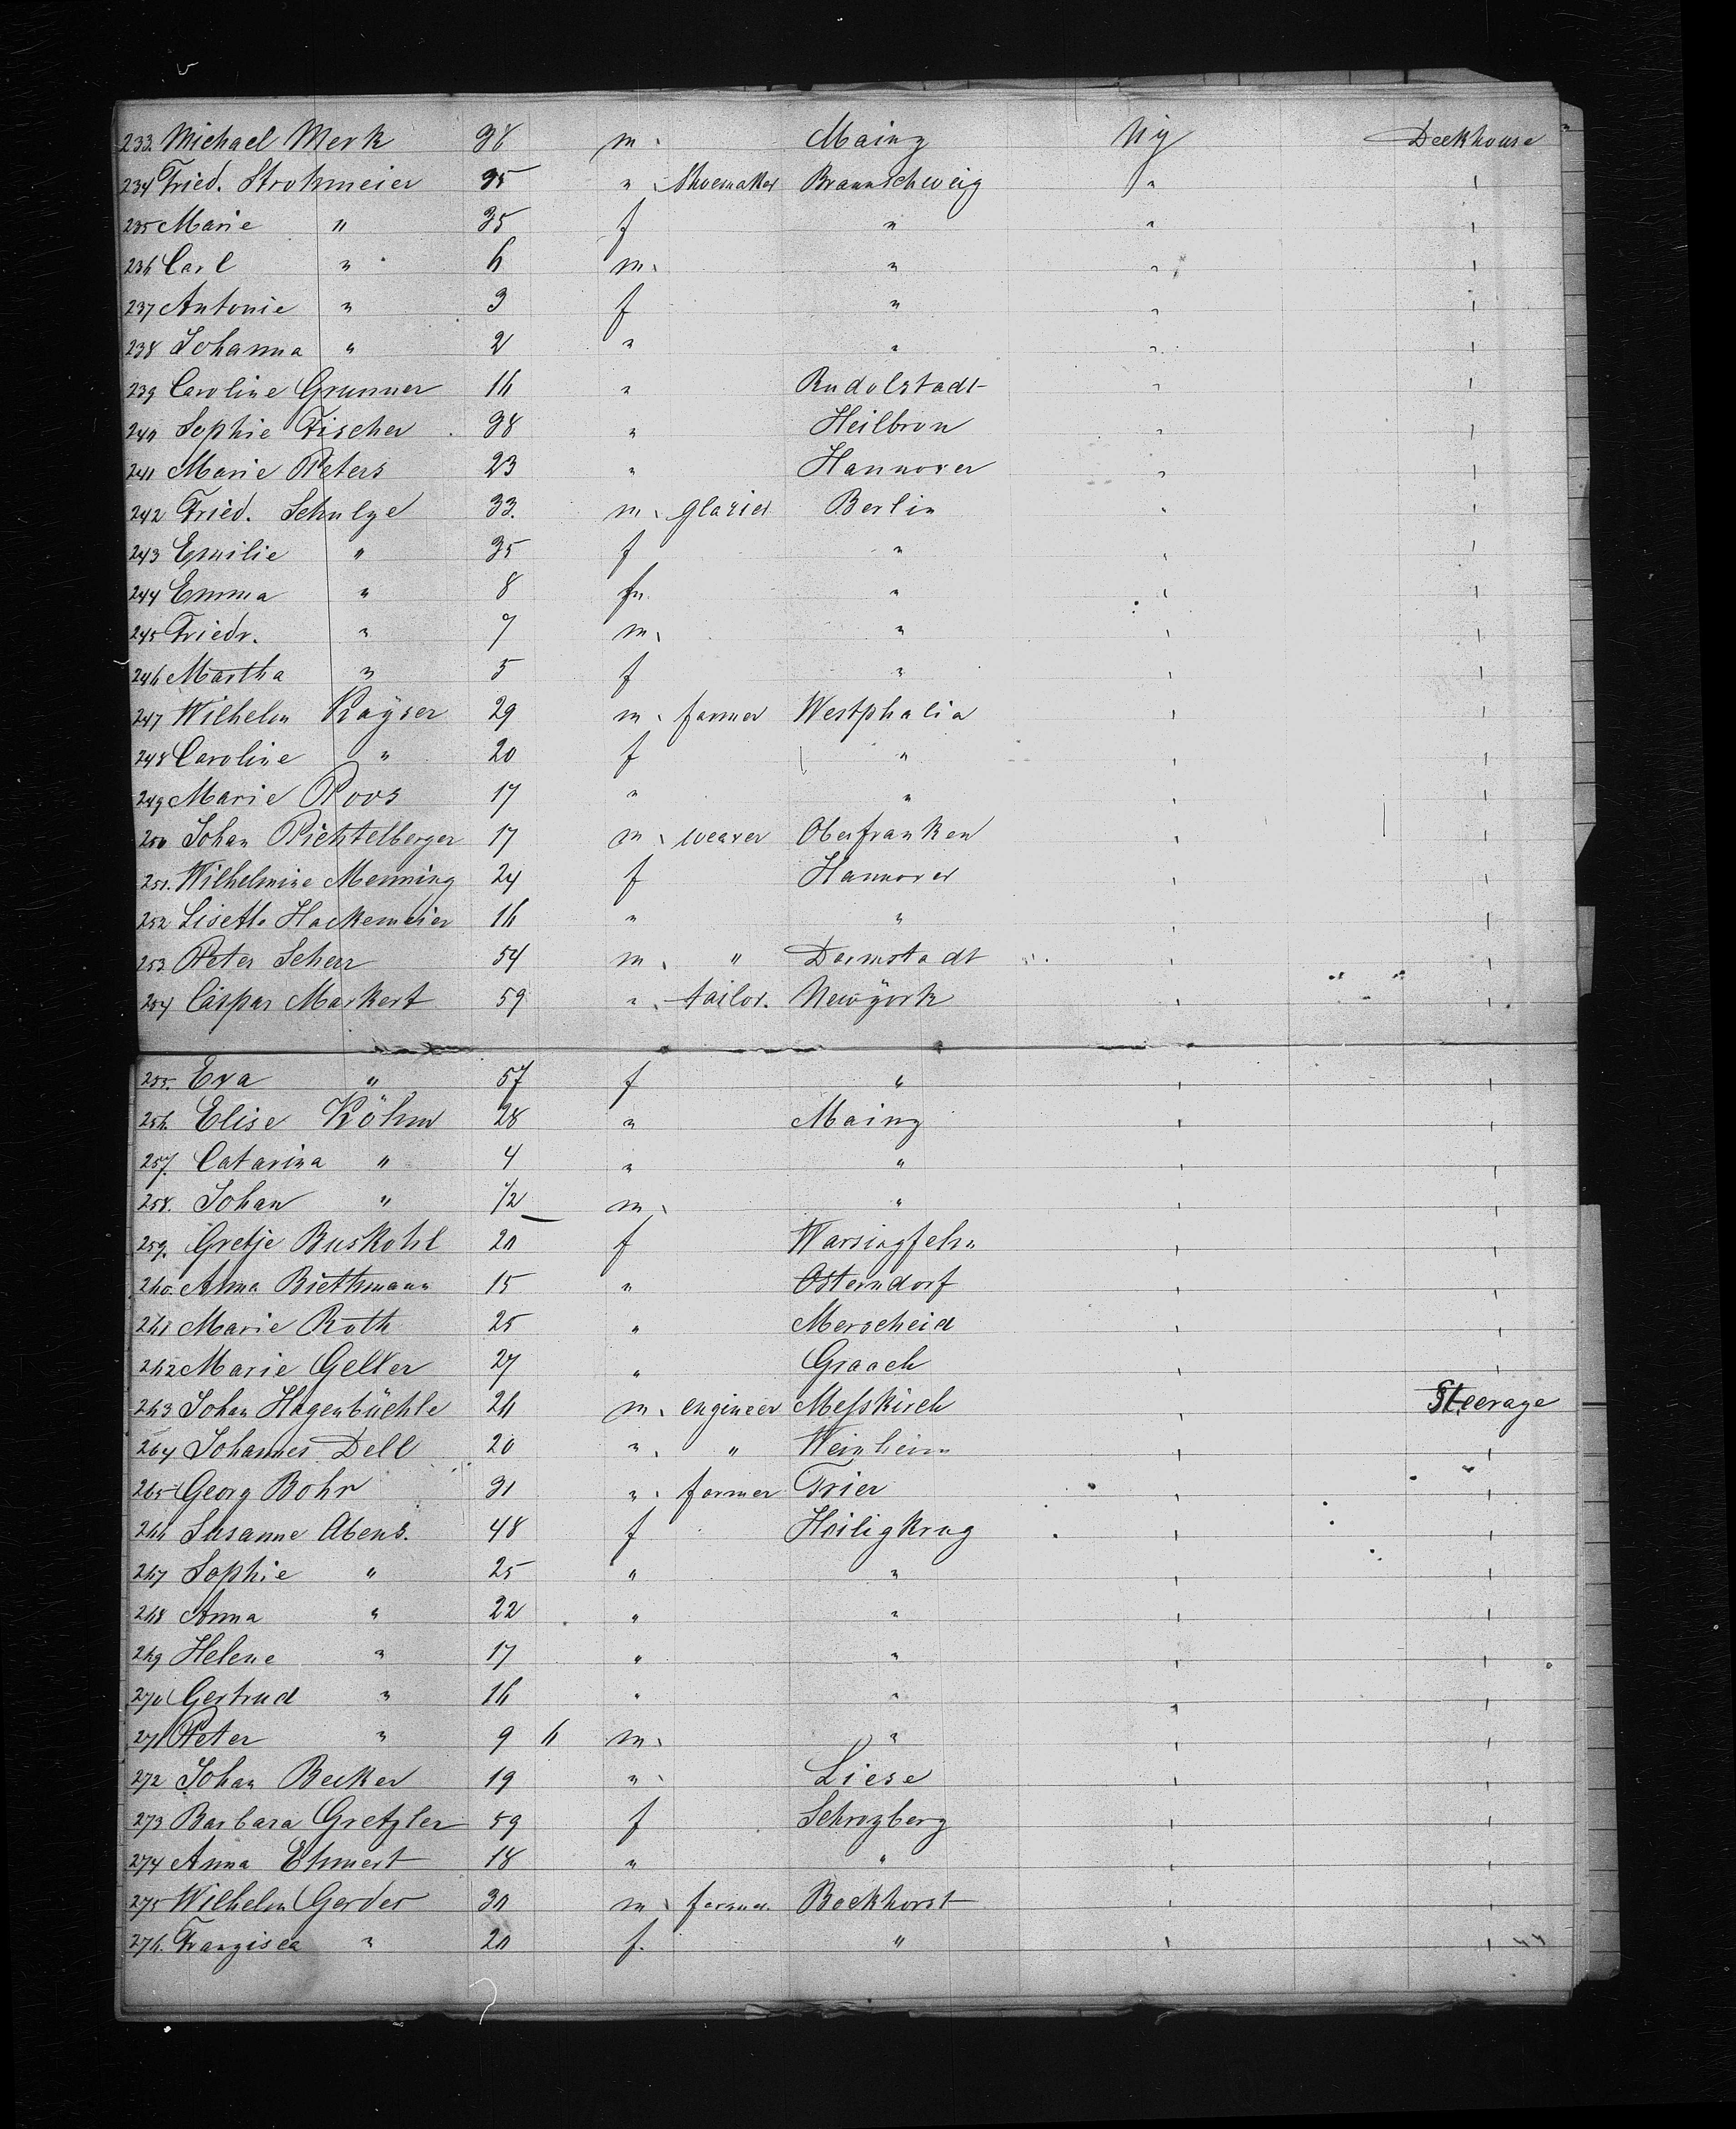 233. Michael Merk 38 m. Mainz Ny Deckhouse
234 Fried. Strohmeier 35 " Shoemaker Braunschweig " "
235 Marie " 35 f " " "
236 Carl " 6 m. " " "
237 Antonie " 3 f " " "
238 Johanna " 2 " " " "
239 Caroline Grunner 16 " Rudolstadt " "
240 Sophie Fischer 38 " Heilbron " "
241 Marie Peters 23 " Hannover " "
242 Fried. Schulze 33. m. glazier Berlin " "
243 Emilie " 35 f " " "
244 Emma " 8 f " " "
245 Friedr. " 7 m. " " "
246 Martha " 5 f " " "
247 Wilhelm Kayser 29 m. farmer Westphalia " "
248 Caroline " 20 f " " "
249 Marie Roos 17 " " " "
250 Johan Richtelberger 17 m. weaver Oberfranken " "
251. Wilhelmine Menning 24 f Hannover " "
252 Lisette Hackemeier 16 " " " "
253 Peter Scherr 54 m. " Darmstadt " "
254 Caspar Markert 59 " tailor. Newÿork " "
255. Eva " 57 f " " "
256. Elise Köhm 28 " Mainz " "
257. Catarina " 4 " " " "
258. Johan " 1/2 m. " " "
259. Gretje Buskohl 20 f Warsingfehn " "
260. Anna Biethmann 15 " Osterndorf " "
261 Marie Roth 25 " Merscheid " "
262 Marie Geller 27 " Graach " "
263 Johan Hagenbüchle 26 m. engineer Messkirch " Steerage
264 Johannes Dell 20 " " Weinheim " "
265 Georg Bohr 31 " farmer Trier " "
266 Susanne Abens. 48 f Heiligkrug " "
267 Sophie " 25 " " " "
268 Anna " 22 " " " "
269 Helene " 17 " " " "
270 Gertrud " 16 " " " "
271 Peter " 9 6 m. " " "
272 Johan Becker 19 " Liese " "
273 Barbara Gretzler 59 f Schrozberg " "
274 Anna Ehmert 18 " " " "
275 Wilhelm Gerdes 30 m. farmer. Bockhorst " "
276. Franzisca " 20 f. " " "